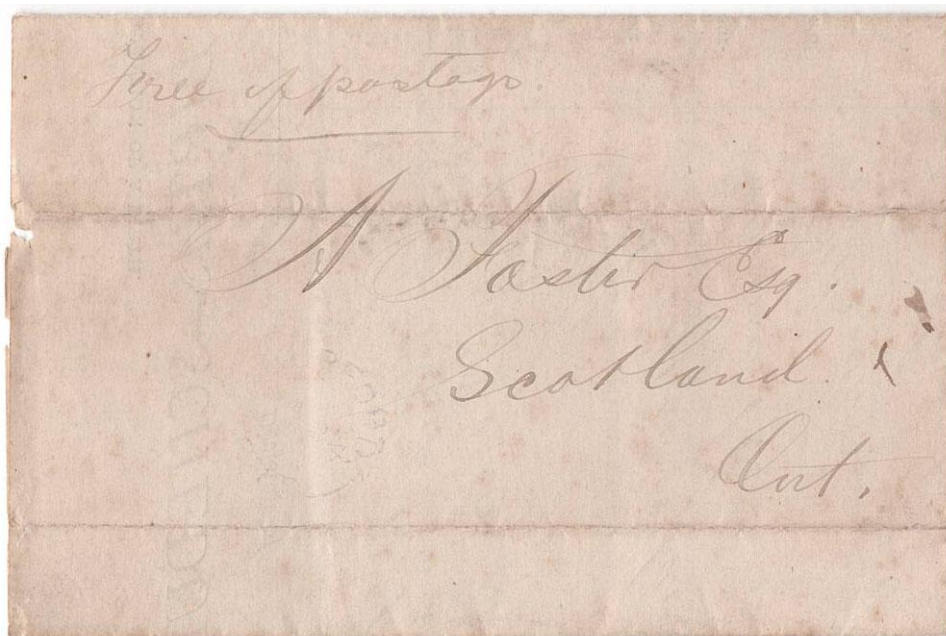 Free of postage.
A Foster Esq.
Scotland.
Ont.